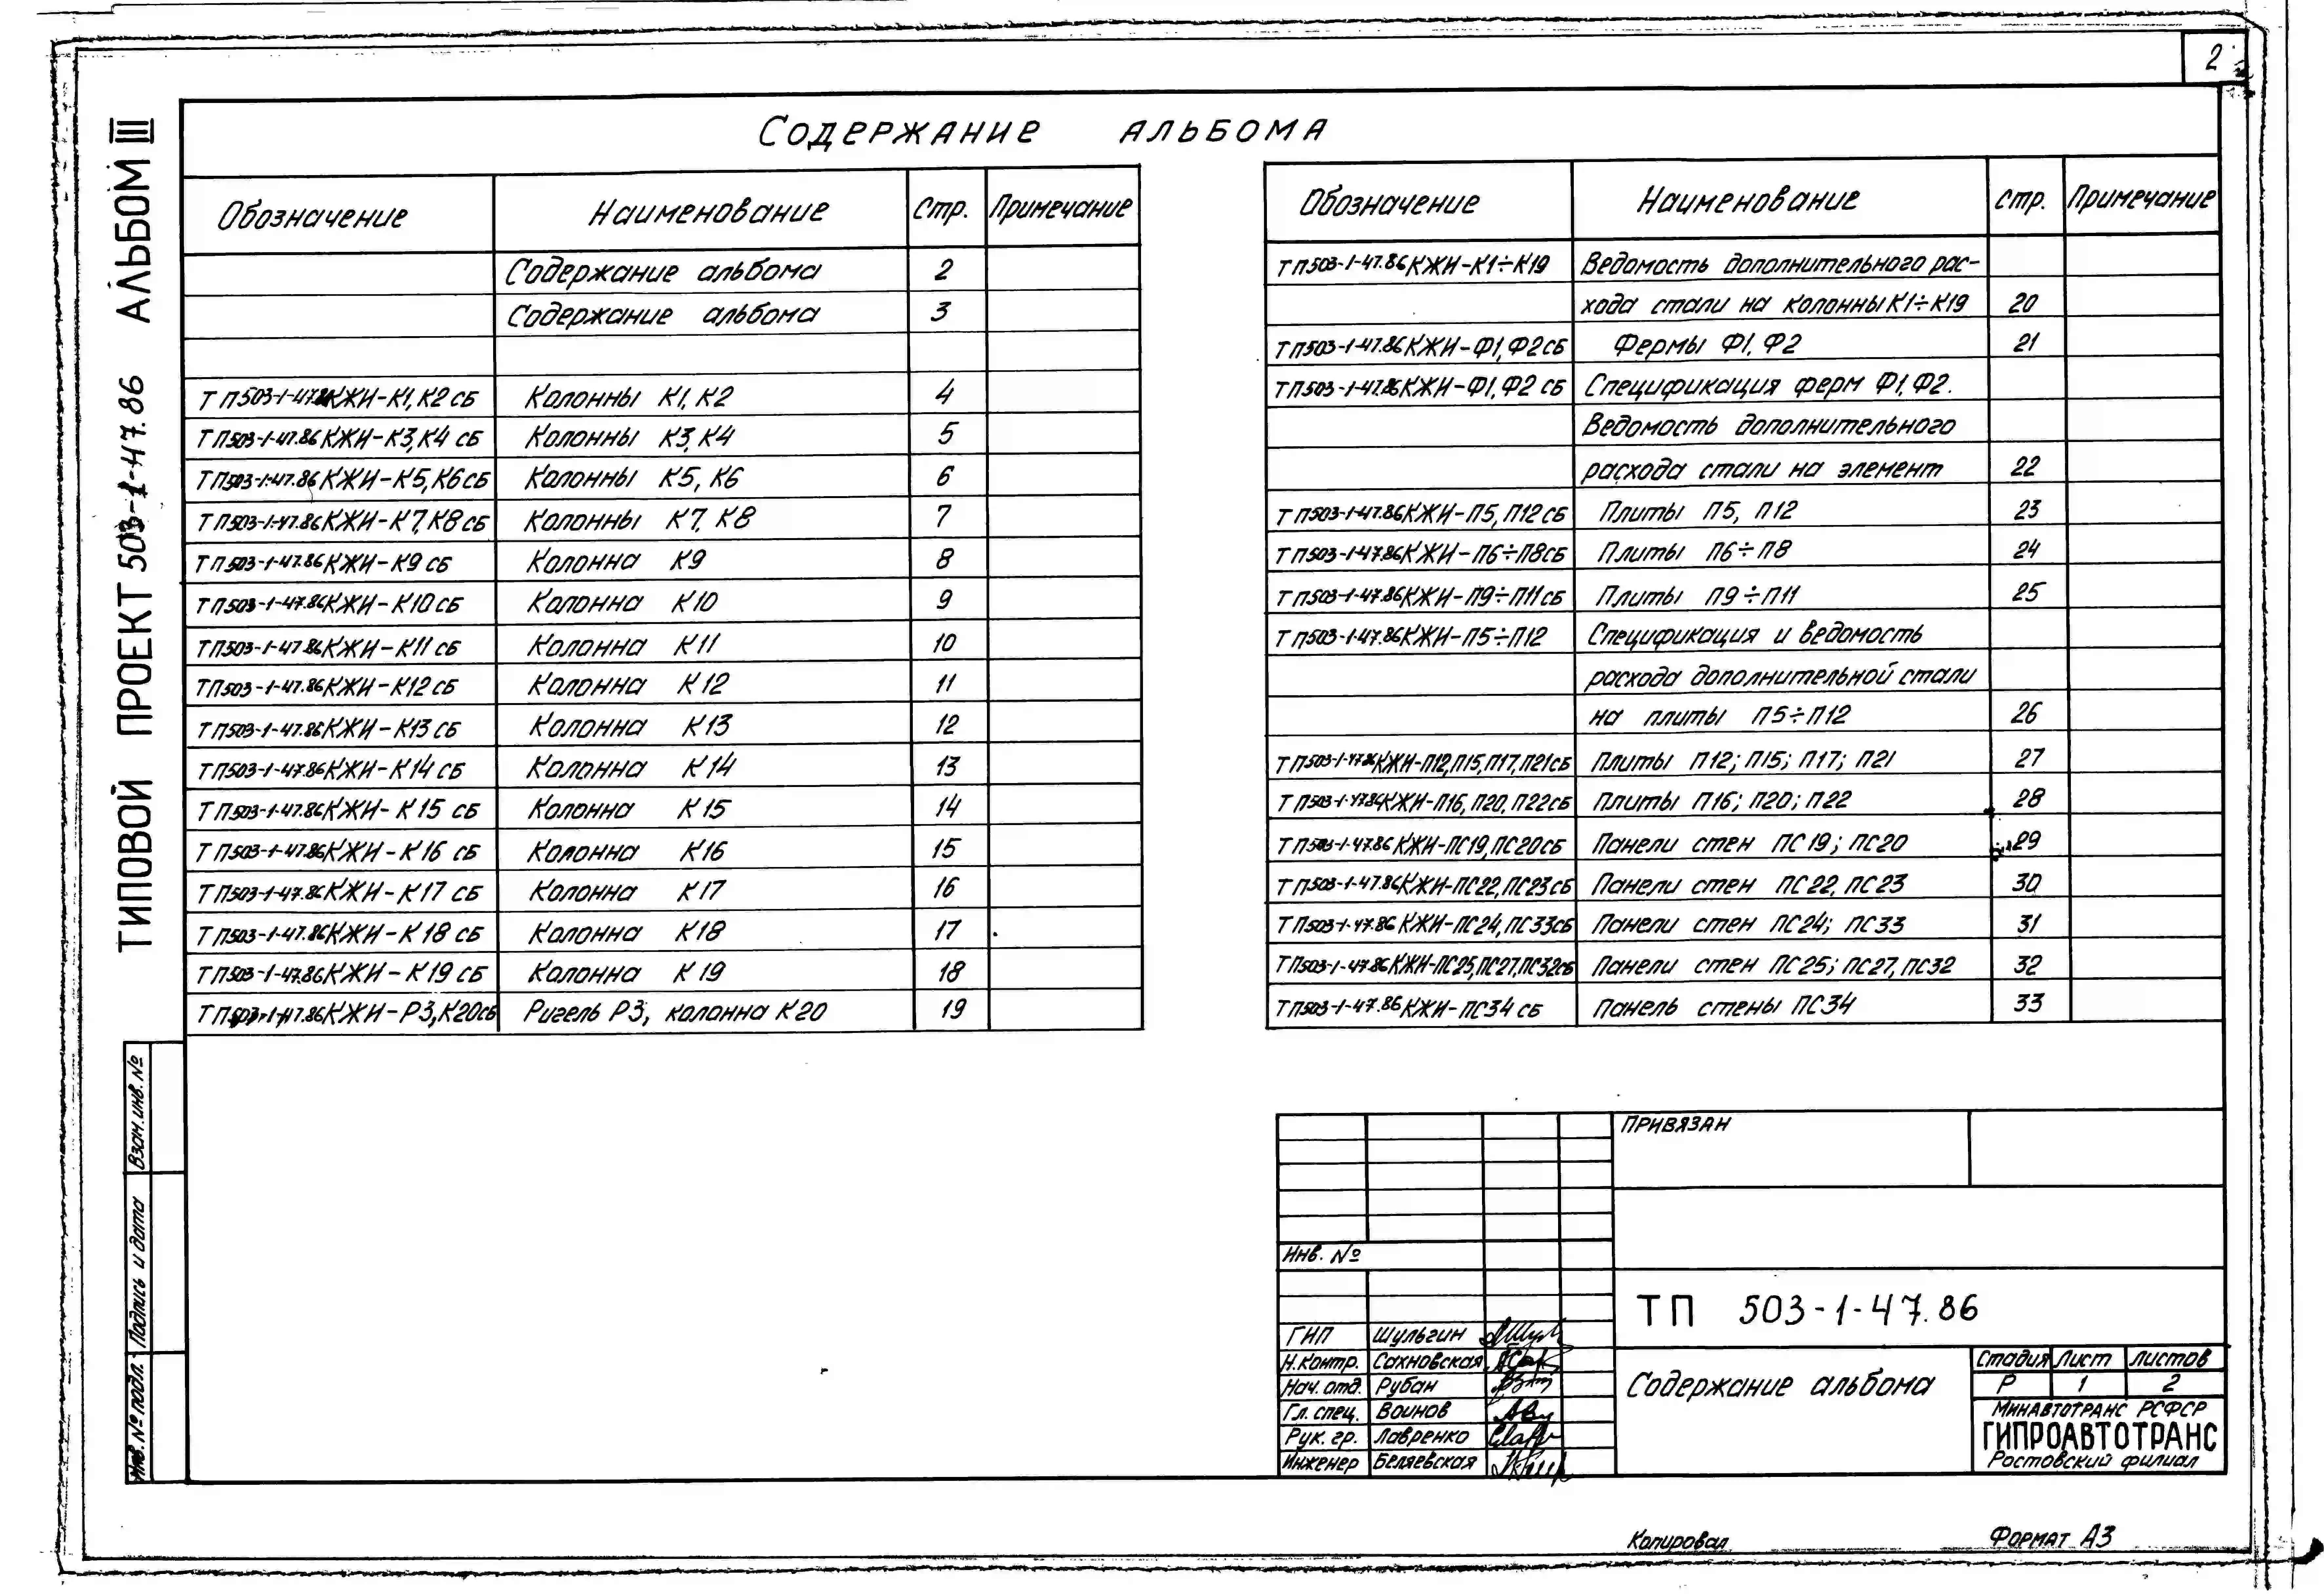 2
ТИПОВОЙ ПРОЕКТ 503-1-47.86 АЛЬБОМ III
Содержание альбома
Обозначение Наименование Стр. Примечание
Содержание альбома 2
Содержание альбома 3
ТП503-1-47.86КЖИ-К1,К2сб Колонны К1, К2 4
ТП503-1-47.86КЖИ-К3,К4 сб Колонны К3, К4 5
ТП503-1-47.86КЖИ-К5,К6сб Колонны К5, К6 6
ТП503-1-47.86КЖИ-К7,К8сб Колонны К7, К8 7
ТП503-1-47.86КЖИ-К9сб Колонна К9 8
ТП503-1-47.86КЖИ-К10сб Колонна К10 9
ТП503-1-47.86КЖИ-К11сб Колонна К11 10
ТП503-1-47.86КЖИ-К12сб Колонна К12 11
ТП503-1-47.86КЖИ-К13сб Колонна К13 12
ТП503-1-47.86КЖИ-К14сб Колонна К14 13
ТП503-1-47.86КЖИ-К15 сб Колонна К15 14
ТП503-1-47.86КЖИ-К16 сб Колонна К16 15
ТП503-1-47.86КЖИ-К17 сб Колонна К17 16
ТП503-1-47.86КЖИ-К18 сб Колонна К18 17
ТП503-1-47.86КЖИ-К19 сб Колонна К19 18
ТП503-1-47.86КЖИ-Р3,К20сб Ригель Р3, колонна К20 19
Обозначение Наименование стр. Примечание
ТП503-1-47.86КЖИ-К1÷К19 Ведомость дополнительного рас-
хода стали на колонны К1÷К19 20
ТП503-1-47.86КЖИ-Ф1,Ф2сб Фермы Ф1, Ф2 21
ТП503-1-47.86КЖИ-Ф1,Ф2 сб Спецификация ферм Ф1, Ф2.
Ведомость дополнительного
расхода стали на элемент 22
ТП503-1-47.86КЖИ-П5,П12сб Плиты П5, П12 23
ТП503-1-47.86КЖИ-П6÷П8сб Плиты П6÷П8 24
ТП503-1-47.86КЖИ-П9÷П11сб Плиты П9÷П11 25
ТП503-1-47.86КЖИ-П5÷П12 Спецификация и ведомость
расхода дополнительной стали
на плиты П5÷П12 26
ТП503-1-47.86КЖИ-П12,П15,П17,П21сб Плиты П12; П15; П17; П21 27
ТП503-1-47.86КЖИ-П16,П20,П22сб Плиты П16; П20; П22 28
ТП503-1-47.86КЖИ-ПС19,ПС20сб Панели стен ПС19; ПС20 29
ТП503-1-47.86КЖИ-ПС22,ПС23сб Панели стен ПС22, ПС23 30
ТП503-1-47.86КЖИ-ПС24,ПС33сб Панели стен ПС24; ПС33 31
ТП503-1-47.86КЖИ-ПС25,ПС27,ПС32сб Панели стен ПС25; ПС27, ПС32 32
ТП503-1-47.86КЖИ-ПС34 сб Панель стены ПС34 33
Взам.инв.№
Подпись и дата
Инв.№подл.
ПРИВЯЗАН
Инв. №
ТП 503-1-47.86
ГИП Шульгин
Н.контр. Сахновская
Нач.отд. Рубан
Гл.спец. Воинов
Рук.гр. Лавренко
Инженер Беляевская
Содержание альбома
Стадия Лист Листов
Р 1 2
МИНАВТОТРАНС РСФСР
ГИПРОАВТОТРАНС
Ростовский филиал
Копировал Формат А3